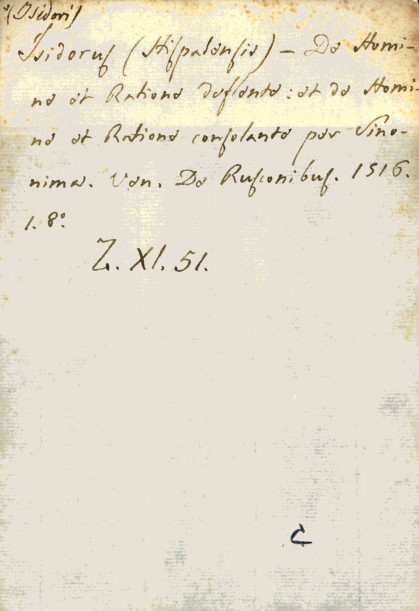 (Osidori)
Isidorus (Hispalensis) – De Homi-
ne et Ratione deflente: et de Homi-
ne et Ratione consolante per Sino-
nima. Ven. De Rusconibus. 1516.
1. 8°.
Z. XI. 51.
C